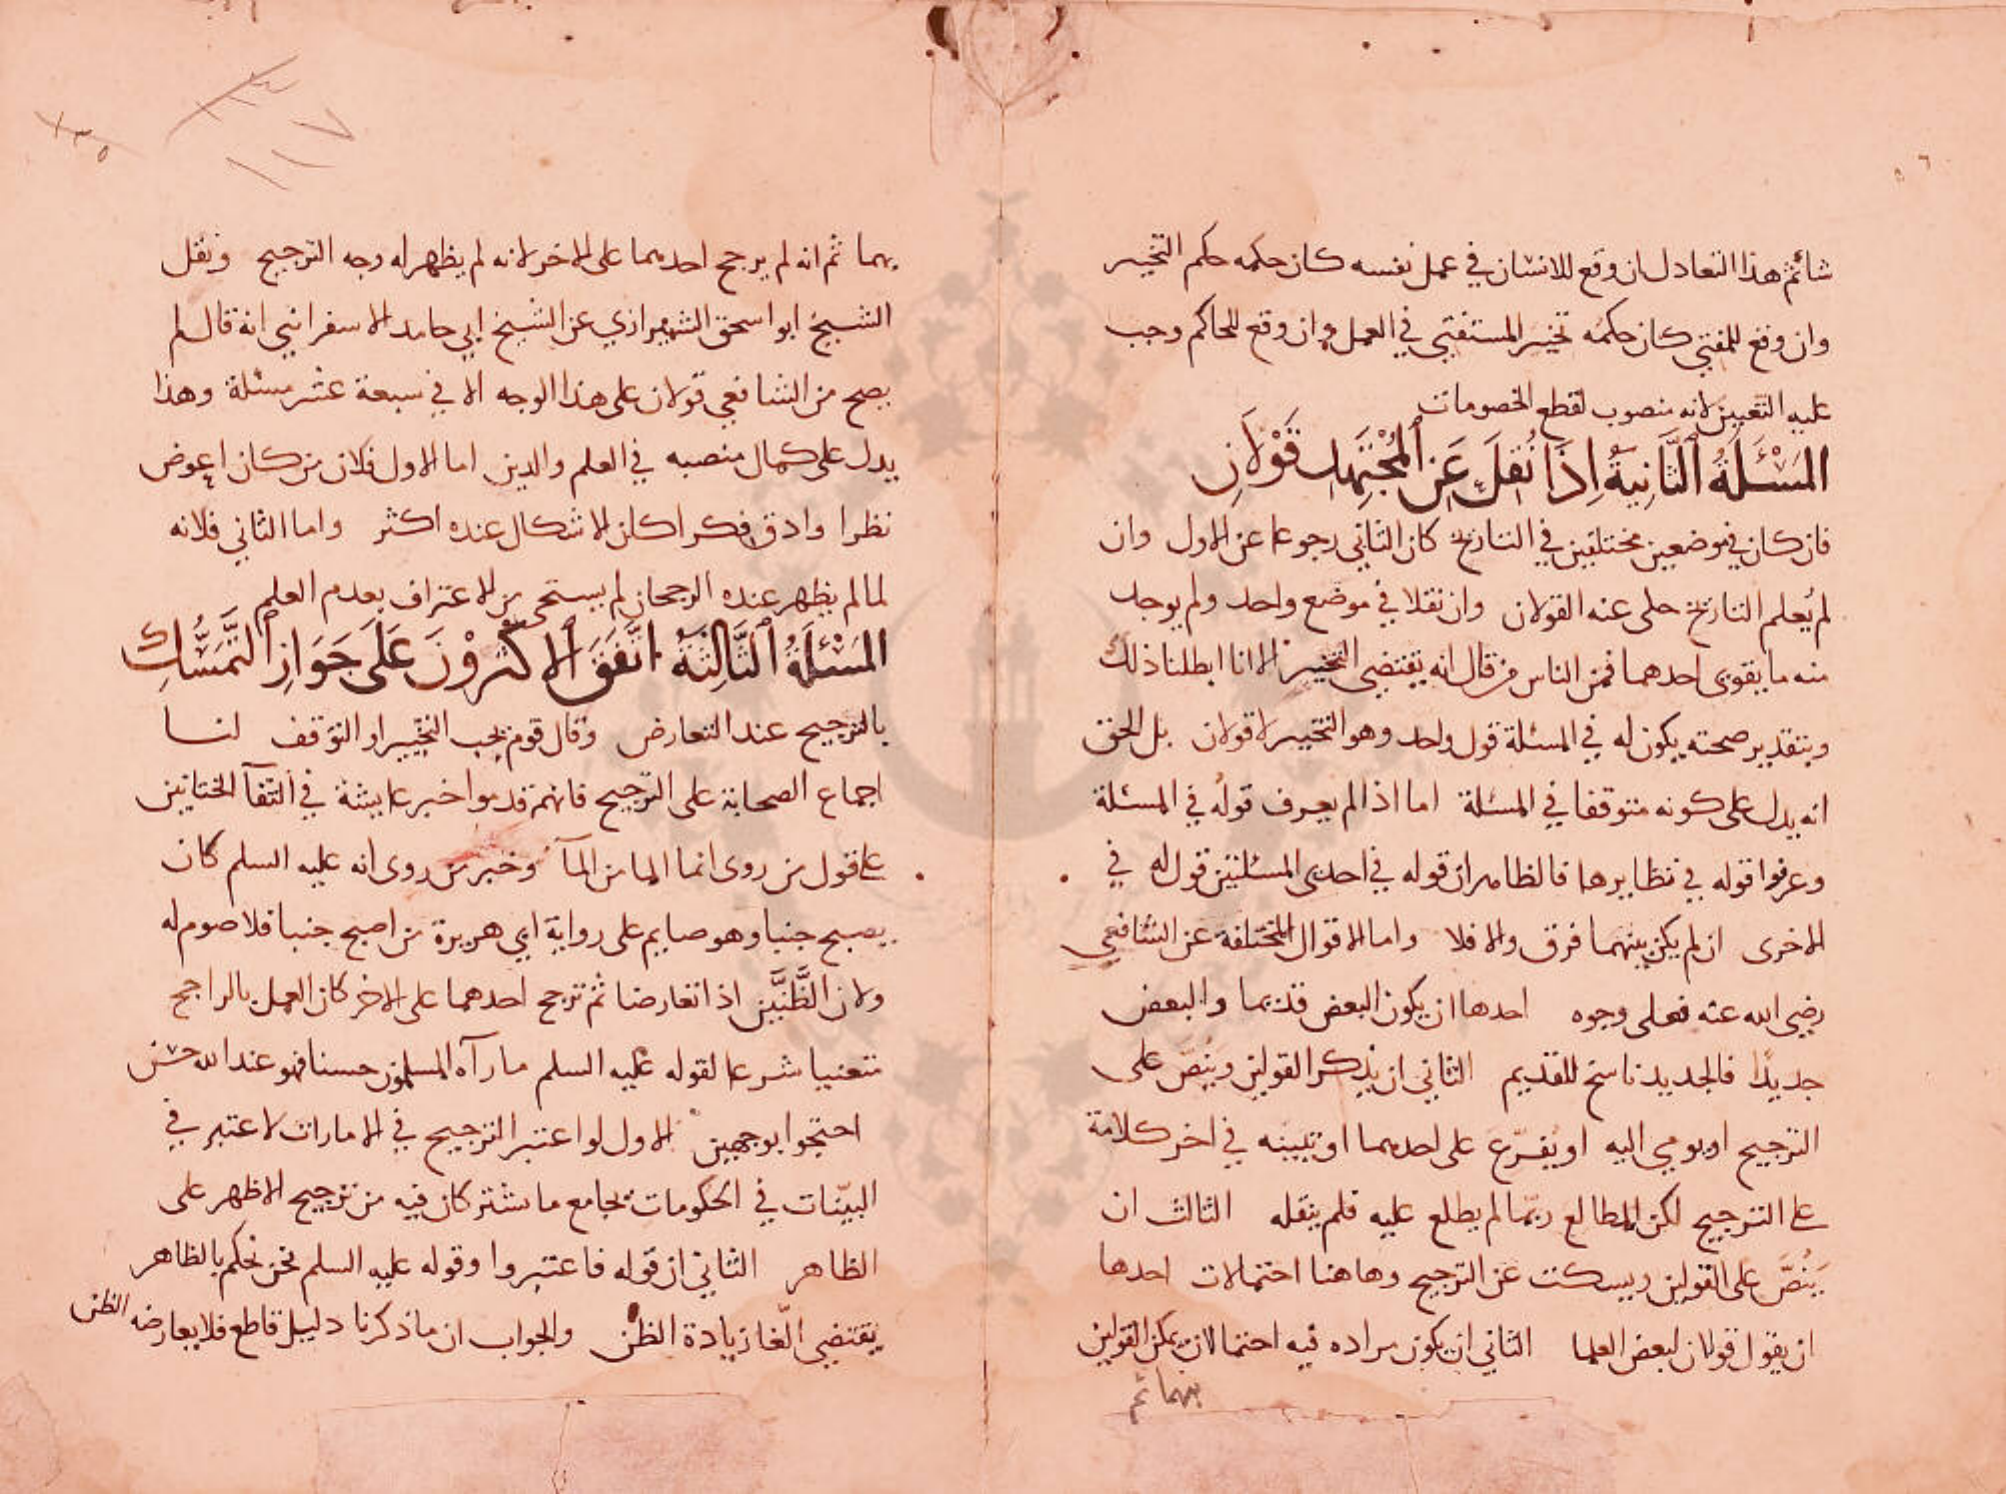 ٥٦
شائم هذا التعادل ان وقع للانسان في عمل نفسه كان حكمه حكم التخيير
وان وقع للمفتي كان حكمه تخيير المستفتي في العمل وان وقع للحاكم وجب
عليه التعيين لانه منصوب لقطع الخصومات
المَسْئَلَةُ الثَّانِيَةُ اِذَا نُقِلَ عَنِ المُجْتَهِدِ قَوْلَانِ
فان كان في موضعين مختلفين في التاريخ كان الثاني رجوعا عن الاول وان
لم يُعلم التاريخ حكي عنه القولان وان نقلا في موضع واحد ولم يوجد
منه ما يقوي احدهما فمن الناس من قال انه يقتضي التخيير الا انا ابطلنا ذلك
وبتقدير صحته يكون له في المسئلة قول واحد وهو التخيير لا قولان بل الحق
انه يدل على كونه متوقفا في المسئلة اما اذا لم يعرف قوله في المسئلة
وعرفوا قوله في نظايرها فالظاهر ان قوله في احدى المسئلتين قول له في
الاخرى ان لم يكن بينهما فرق والا فلا واما الاقوال المختلفة عن الشافعي
رضي الله عنه فعلى وجوه احدها ان يكون البعض قديما والبعض
جديدًا فالجديد ناسخ للقديم الثاني ان يذكر القولين وينُصّ على
الترجيح او يومي اليه او يفرّع على احدهما او تبيينه في اخر كلامه
على الترجيح لكن المطالع ربّما لم يطلع عليه فلم ينقله الثالث ان
يَنُصَّ على القولين ويسكت عن الترجيح وها هنا احتمالات احدها
ان يقول قولان لبعض العلما الثاني ان يكون مراده فيه احتمالان يمكن القولين
بهما ثم
١١٧
١٣٥
بهما ثم انه لم يرجح احدهما على الاخر لانه لم يظهر له وجه الترجيح ونقل
الشيخ ابو اسحق الشيرازي عن الشيخ ابي حامد الاسفرايني انه قال لم
يصح من الشافعي قولان على هذا الوجه الا في سبعة عشر مسئلة وهذا
يدل على كمال منصبه في العلم والدين اما الاول فلان من كان اغوض
نظرا وادق فكرا كان الاشكال عنده اكثر واما الثاني فلانه
لما لم يظهر عنده الرجحان لم يستحي من الاعتراف بعدم العلم
المَسْئلَةُ الثَّالِثَةُ اتَّفَقَ الاكْثَرُوْنَ عَلَى جَوَازِ التَّمَسُّكِ
بالترجيح عند التعارض وقال قوم يجب التخيير او التوقف لنا
اجماع الصحابة على الترجيح فانهم قدموا خبر عايشة في التقآ الختانين
على قول من روى انما الما من المآ وخبر من روى انه عليه السلم كان
يصبح جنبا وهو صايم على رواية ابي هريرة من اصبح جنبا فلا صوم له
ولان الظَّنَّيْن اذا تعارضا ثم ترجح احدهما على الاخر كان العمل بالراجح
متعينا شرعا لقوله عليه السلم ما رآه المسلمون حسنا فهو عند الله حسن
احتجوا بوجهين الاول لو اعتبر الترجيح في الامارات لاعتبر في
البيّنات في الحكومات بجامع ما يشتركان فيه من ترجيح الاظهر على
الظاهر الثاني ان قوله فاعتبروا وقوله عليه السلم نحن نحكم بالظاهر
يقتضي الغآ زيادة الظن والجواب ان ما ذكرنا دليل قاطع فلا يعارضه الظن